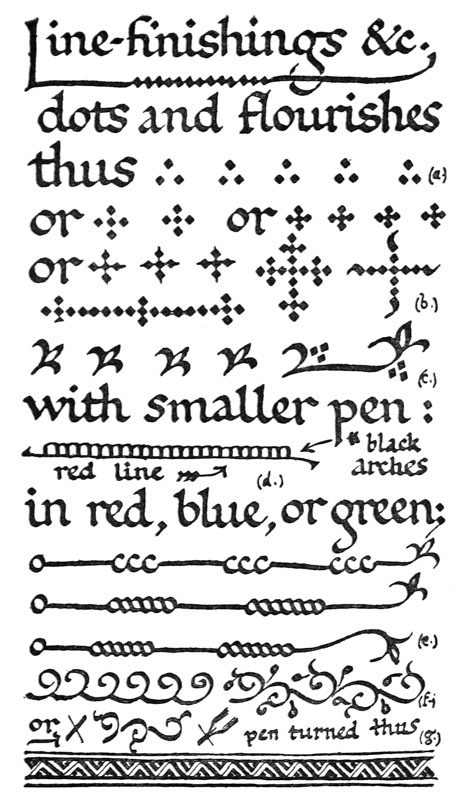 Line-finishings &c.,
dots and flourishes
thus (a.)
or or
or (b.)
(c.)
with smaller pen :
black
red line (d.) arches
in red, blue, or green:
(e.)
(f.)
or, pen turned thus (g.)